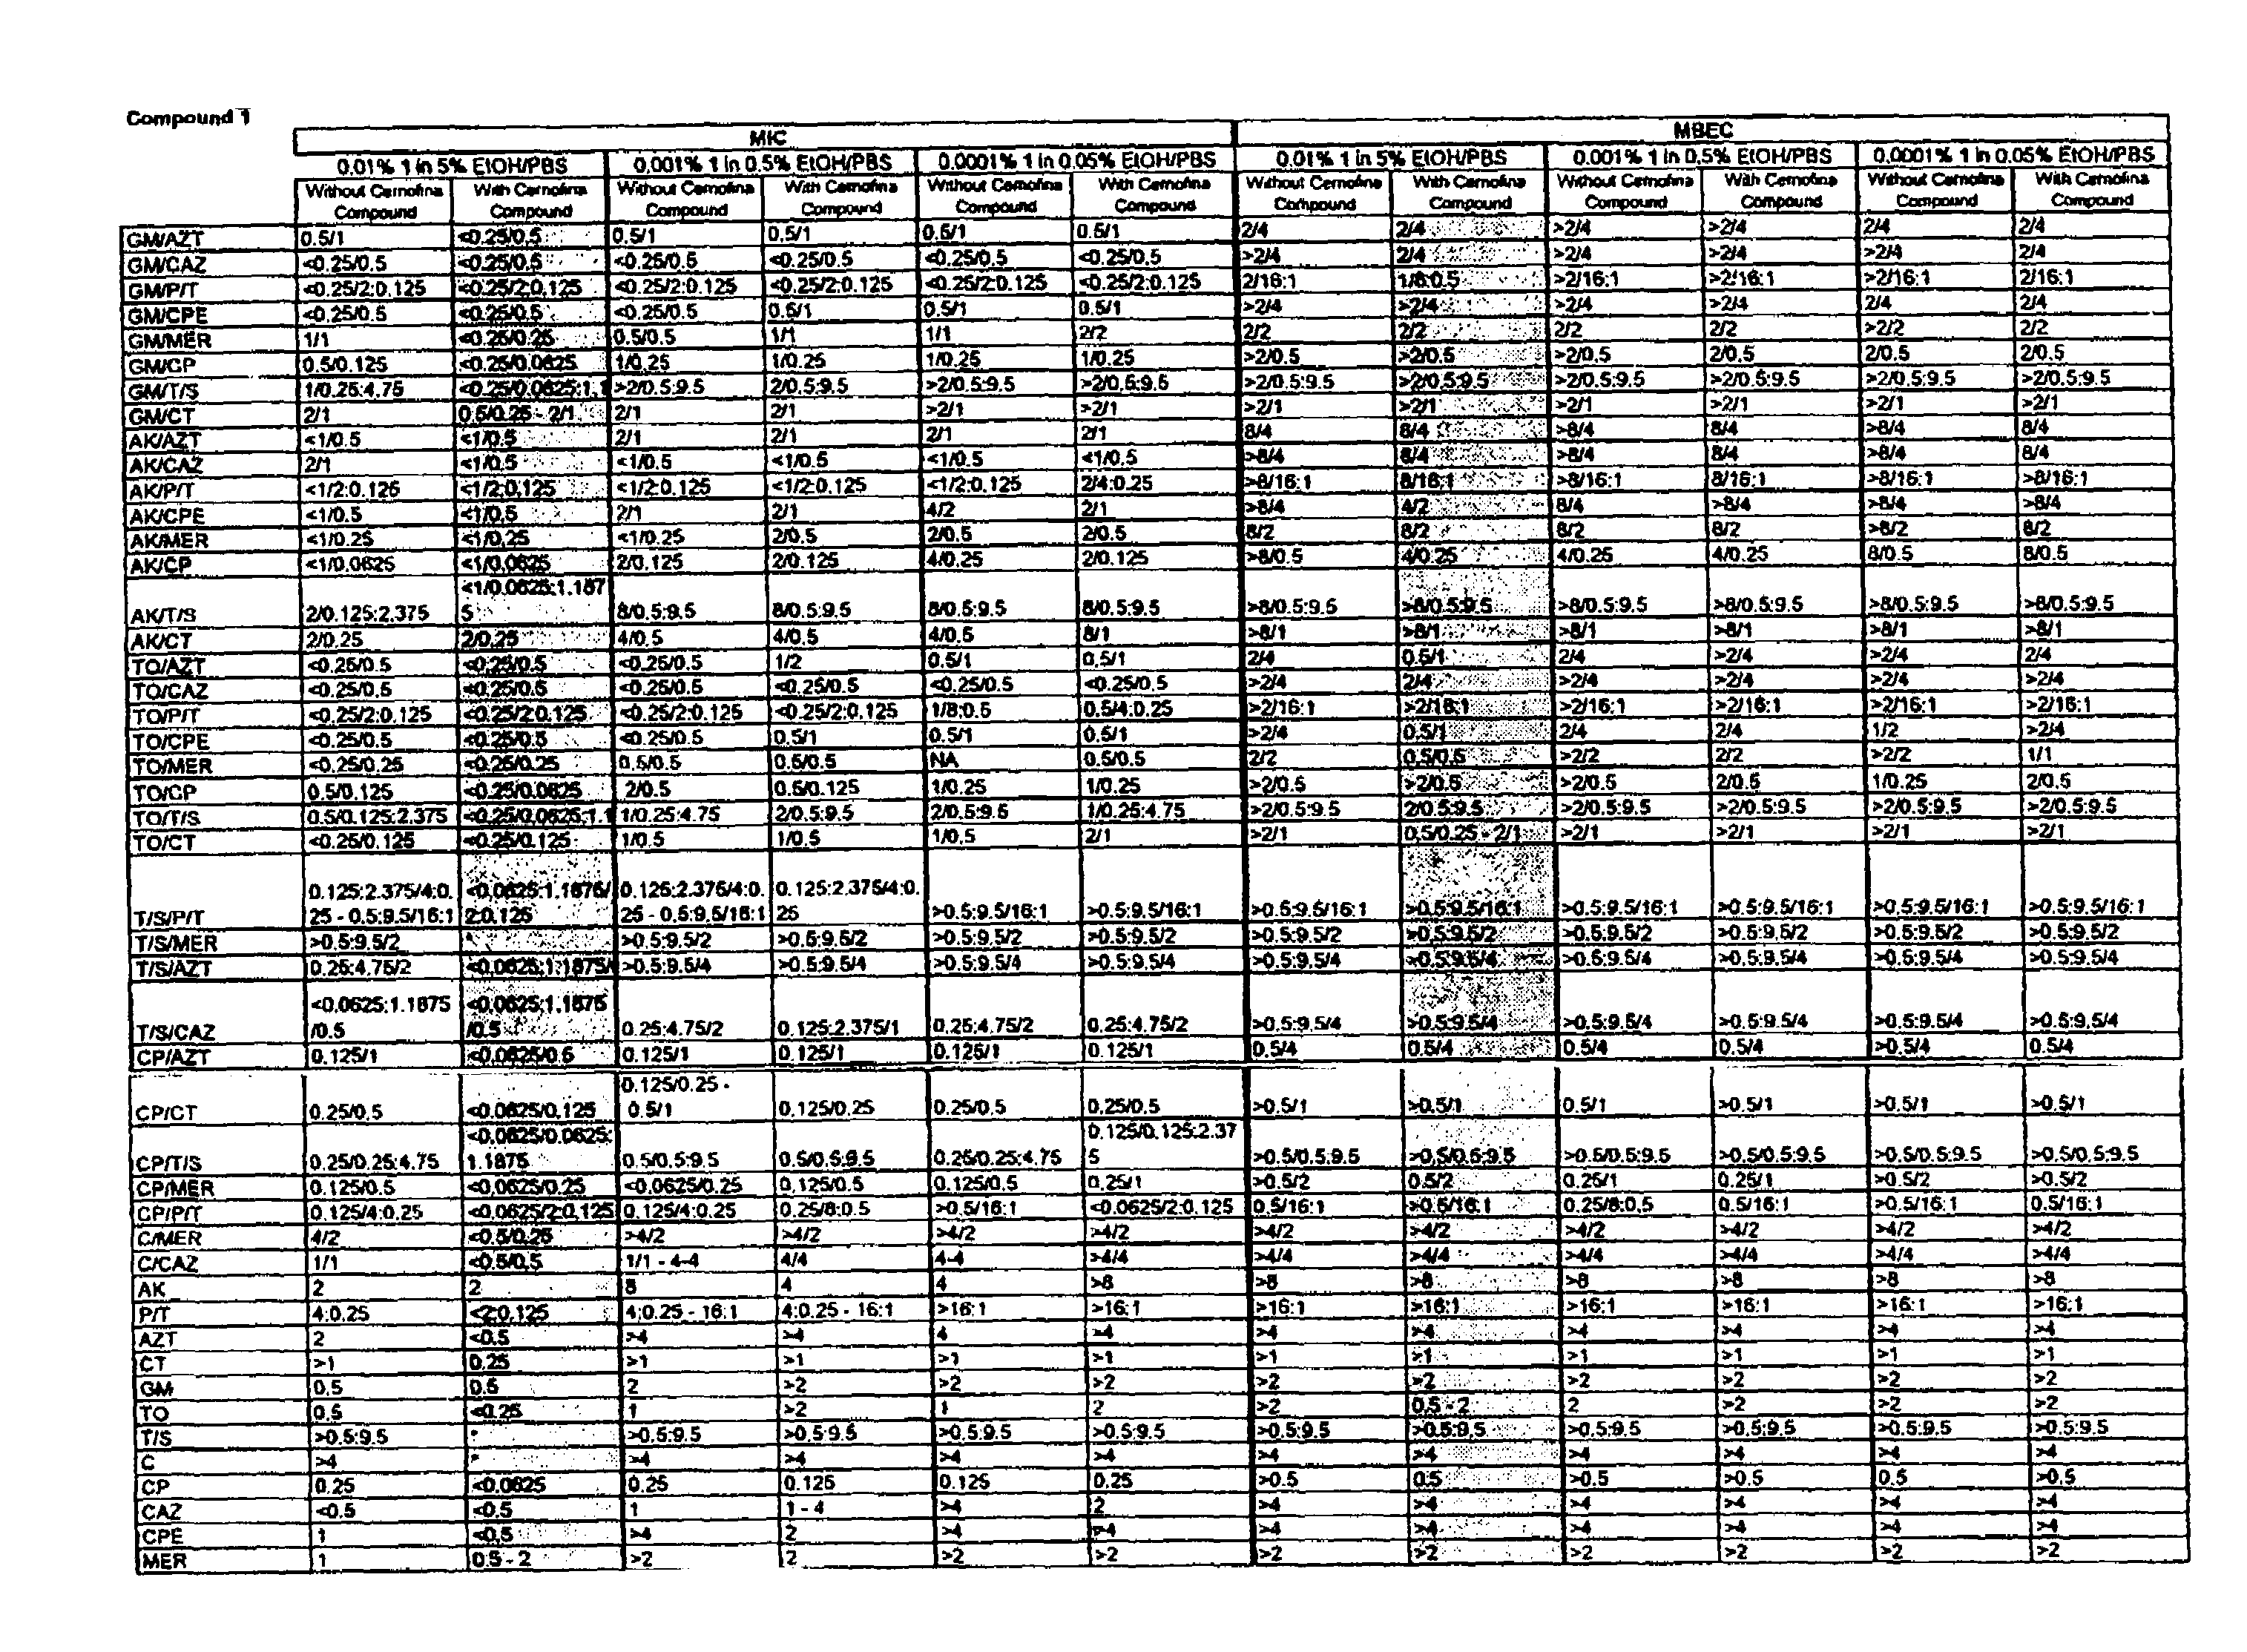 Compound 1
MIC MBEC
0.01% 1 in 5% EtOH/PBS 0.001% 1 in 0.5% EtOH/PBS 0.0001% 1 in 0.05% EtOH/PBS 0.01% 1 in 5% EtOH/PBS 0.001% 1 in 0.5% EtOH/PBS 0.0001% 1 in 0.05% EtOH/PBS
Without Cernofina With Cernofina Without Cernofina With Cernofina Without Cernofina With Cernofina Without Cernofina With Cernofina Without Cernofina With Cernofina Without Cernofina With Cernofina
Compound Compound Compound Compound Compound Compound Compound Compound Compound Compound Compound Compound
GM/AZT 0.5/1 <0.25/0.5 0.5/1 0.5/1 0.5/1 0.5/1 2/4 2/4 >2/4 >2/4 2/4 2/4
GM/CAZ <0.25/0.5 <0.25/0.5 <0.25/0.5 <0.25/0.5 <0.25/0.5 <0.25/0.5 >2/4 2/4 >2/4 >2/4 >2/4 2/4
GM/P/T <0.25/2:0.125 <0.25/2:0.125 <0.25/2:0.125 <0.25/2:0.125 <0.25/2:0.125 <0.25/2:0.125 2/16:1 1/8:0.5 >2/16:1 >2/16:1 >2/16:1 2/16:1
GM/CPE <0.25/0.5 <0.25/0.5 <0.25/0.5 0.5/1 0.5/1 0.5/1 >2/4 >2/4 >2/4 >2/4 2/4 2/4
GM/MER 1/1 <0.25/0.25 0.5/0.5 1/1 1/1 2/2 2/2 2/2 2/2 2/2 >2/2 2/2
GM/CP 0.5/0.125 <0.25/0.0625 1/0.25 1/0.25 1/0.25 1/0.25 >2/0.5 >2/0.5 >2/0.5 2/0.5 2/0.5 2/0.5
GM/T/S 1/0.25:4.75 <0.25/0.0625:1.1 >2/0.5:9.5 2/0.5:9.5 >2/0.5:9.5 >2/0.5:9.5 >2/0.5:9.5 >2/0.5:9.5 >2/0.5:9.5 >2/0.5:9.5 >2/0.5:9.5 >2/0.5:9.5
GM/CT 2/1 0.5/0.25 - 2/1 2/1 2/1 >2/1 >2/1 >2/1 >2/1 >2/1 >2/1 >2/1 >2/1
AK/AZT <1/0.5 <1/0.5 2/1 2/1 2/1 2/1 8/4 8/4 >8/4 8/4 >8/4 8/4
AK/CAZ 2/1 <1/0.5 <1/0.5 <1/0.5 <1/0.5 <1/0.5 >8/4 8/4 >8/4 8/4 >8/4 8/4
AK/P/T <1/2:0.125 <1/2:0.125 <1/2:0.125 <1/2:0.125 <1/2:0.125 2/4:0.25 >8/16:1 8/16:1 >8/16:1 8/16:1 >8/16:1 >8/16:1
AK/CPE <1/0.5 <1/0.5 2/1 2/1 4/2 2/1 >8/4 4/2 8/4 >8/4 >8/4 >8/4
AK/MER <1/0.25 <1/0.25 <1/0.25 2/0.5 2/0.5 2/0.5 8/2 8/2 8/2 8/2 >8/2 8/2
AK/CP <1/0.0625 <1/0.0625 2/0.125 2/0.125 4/0.25 2/0.125 >8/0.5 4/0.25 4/0.25 4/0.25 8/0.5 8/0.5
<1/0.0625:1.187
AK/T/S 2/0.125:2.375 5 8/0.5:9.5 8/0.5:9.5 8/0.5:9.5 8/0.5:9.5 >8/0.5:9.5 >8/0.5:9.5 >8/0.5:9.5 >8/0.5:9.5 >8/0.5:9.5 >8/0.5:9.5
AK/CT 2/0.25 2/0.25 4/0.5 4/0.5 4/0.5 8/1 >8/1 >8/1 >8/1 >8/1 >8/1 >8/1
TO/AZT <0.25/0.5 <0.25/0.5 <0.25/0.5 1/2 0.5/1 0.5/1 2/4 0.5/1 2/4 >2/4 >2/4 2/4
TO/CAZ <0.25/0.5 <0.25/0.5 <0.25/0.5 <0.25/0.5 <0.25/0.5 <0.25/0.5 >2/4 2/4 >2/4 >2/4 >2/4 >2/4
TO/P/T <0.25/2:0.125 <0.25/2:0.125 <0.25/2:0.125 <0.25/2:0.125 1/8:0.5 0.5/4:0.25 >2/16:1 >2/16:1 >2/16:1 >2/16:1 >2/16:1 >2/16:1
TO/CPE <0.25/0.5 <0.25/0.5 <0.25/0.5 0.5/1 0.5/1 0.5/1 >2/4 0.5/1 2/4 2/4 1/2 >2/4
TO/MER <0.25/0.25 <0.25/0.25 0.5/0.5 0.5/0.5 NA 0.5/0.5 2/2 0.5/0.5 >2/2 2/2 >2/2 1/1
TO/CP 0.5/0.125 <0.25/0.0625 2/0.5 0.5/0.125 1/0.25 1/0.25 >2/0.5 >2/0.5 >2/0.5 2/0.5 1/0.25 2/0.5
TO/T/S 0.5/0.125:2.375 <0.25/0.0625:1.1 1/0.25:4.75 2/0.5:9.5 2/0.5:9.5 1/0.25:4.75 >2/0.5:9.5 2/0.5:9.5 >2/0.5:9.5 >2/0.5:9.5 >2/0.5:9.5 >2/0.5:9.5
TO/CT <0.25/0.125 <0.25/0.125 1/0.5 1/0.5 1/0.5 2/1 >2/1 0.5/0.25 - 2/1 >2/1 >2/1 >2/1 >2/1
0.125:2.375/4:0. <0.0625:1.1875/ 0.125:2.375/4:0. 0.125:2.375/4:0.
T/S/P/T 25 - 0.5:9.5/16:1 2:0.125 25 - 0.5:9.5/16:1 25 >0.5:9.5/16:1 >0.5:9.5/16:1 >0.5:9.5/16:1 >0.5:9.5/16:1 >0.5:9.5/16:1 >0.5:9.5/16:1 >0.5:9.5/16:1 >0.5:9.5/16:1
T/S/MER >0.5:9.5/2 * >0.5:9.5/2 >0.5:9.5/2 >0.5:9.5/2 >0.5:9.5/2 >0.5:9.5/2 >0.5:9.5/2 >0.5:9.5/2 >0.5:9.5/2 >0.5:9.5/2 >0.5:9.5/2
T/S/AZT 0.25:4.75/2 <0.0625:1.1875/ >0.5:9.5/4 >0.5:9.5/4 >0.5:9.5/4 >0.5:9.5/4 >0.5:9.5/4 >0.5:9.5/4 >0.5:9.5/4 >0.5:9.5/4 >0.5:9.5/4 >0.5:9.5/4
<0.0625:1.1875 <0.0625:1.1875
T/S/CAZ /0.5 /0.5 0.25:4.75/2 0.125:2.375/1 0.25:4.75/2 0.25:4.75/2 >0.5:9.5/4 >0.5:9.5/4 >0.5:9.5/4 >0.5:9.5/4 >0.5:9.5/4 >0.5:9.5/4
CP/AZT 0.125/1 <0.0625/0.5 0.125/1 0.125/1 0.125/1 0.125/1 0.5/4 0.5/4 0.5/4 0.5/4 >0.5/4 0.5/4
0.125/0.25 -
CP/CT 0.25/0.5 <0.0625/0.125 0.5/1 0.125/0.25 0.25/0.5 0.25/0.5 >0.5/1 >0.5/1 0.5/1 >0.5/1 >0.5/1 >0.5/1
<0.0625/0.0625: 0.125/0.125:2.37
CP/T/S 0.25/0.25:4.75 1.1875 0.5/0.5:9.5 0.5/0.5:9.5 0.25/0.25:4.75 5 >0.5/0.5:9.5 >0.5/0.5:9.5 >0.5/0.5:9.5 >0.5/0.5:9.5 >0.5/0.5:9.5 >0.5/0.5:9.5
CP/MER 0.125/0.5 <0.0625/0.25 <0.0625/0.25 0.125/0.5 0.125/0.5 0.25/1 >0.5/2 0.5/2 0.25/1 0.25/1 >0.5/2 >0.5/2
CP/P/T 0.125/4:0.25 <0.0625/2:0.125 0.125/4:0.25 0.25/8:0.5 >0.5/16:1 <0.0625/2:0.125 0.5/16:1 >0.5/16:1 0.25/8:0.5 0.5/16:1 >0.5/16:1 0.5/16:1
C/MER 4/2 <0.5/0.25 >4/2 >4/2 >4/2 >4/2 >4/2 >4/2 >4/2 >4/2 >4/2 >4/2
C/CAZ 1/1 <0.5/0.5 1/1 - 4-4 4/4 4-4 >4/4 >4/4 >4/4 >4/4 >4/4 >4/4 >4/4
AK 2 2 8 4 4 >8 >8 >8 >8 >8 >8 >8
P/T 4:0.25 <2:0.125 4:0.25 - 16:1 4:0.25 - 16:1 >16:1 >16:1 >16:1 >16:1 >16:1 >16:1 >16:1 >16:1
AZT 2 <0.5 >4 >4 4 >4 >4 >4 >4 >4 >4 >4
CT >1 0.25 >1 >1 >1 >1 >1 >1 >1 >1 >1 >1
GM 0.5 0.5 2 >2 >2 >2 >2 >2 >2 >2 >2 >2
TO 0.5 <0.25 1 >2 1 2 >2 0.5 - 2 2 >2 >2 >2
T/S >0.5:9.5 * >0.5:9.5 >0.5:9.5 >0.5:9.5 >0.5:9.5 >0.5:9.5 >0.5:9.5 >0.5:9.5 >0.5:9.5 >0.5:9.5 >0.5:9.5
C >4 * >4 >4 >4 >4 >4 >4 >4 >4 >4 >4
CP 0.25 <0.0625 0.25 0.125 0.125 0.25 >0.5 0.5 >0.5 >0.5 0.5 >0.5
CAZ <0.5 <0.5 1 1 - 4 >4 2 >4 >4 >4 >4 >4 >4
CPE 1 <0.5 >4 2 >4 >4 >4 >4 >4 >4 >4 >4
MER 1 0.5 - 2 >2 2 >2 >2 >2 >2 >2 >2 >2 >2